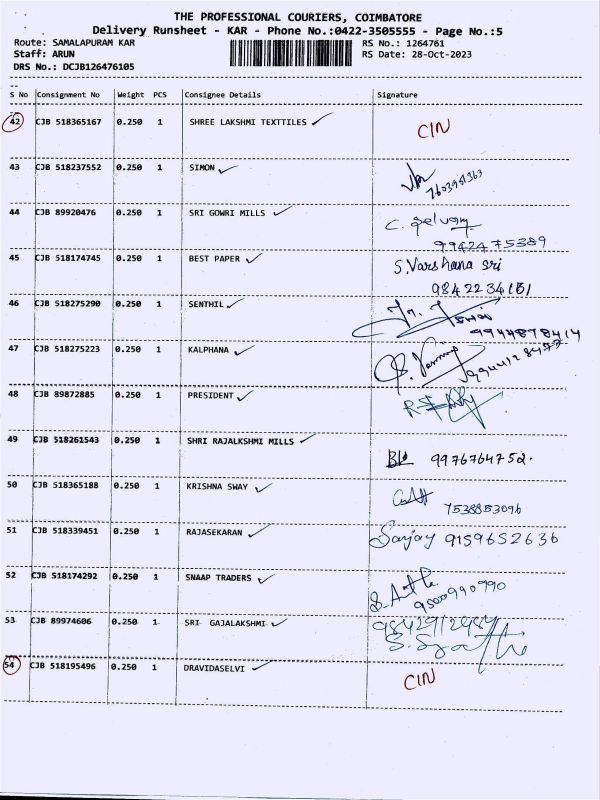 THE PROFESSIONAL COURIERS, COIMBATORE
Delivery Runsheet - KAR - Phone No.:0422-3505555 - Page No.:5
Route: SAMALAPURAM KAR RS No.: 1264761
Staff: ARUN RS Date: 28-Oct-2023
DRS No.: DCJB126476105
S No Consignment No Weight PCS Consignee Details Signature
42 CJB 518365167 0.250 1 SHREE LAKSHMI TEXTTILES ✓ CIN
43 CJB 518237552 0.250 1 SIMON ✓
44 CJB 89920476 0.250 1 SRI GOWRI MILLS ✓ C. Selvam
9942475389
45 CJB 518174745 0.250 1 BEST PAPER ✓ S.Varshana sri
9842234161
46 CJB 518275290 0.250 1 SENTHIL ✓
47 CJB 518275223 0.250 1 KALPHANA ✓
48 CJB 89872885 0.250 1 PRESIDENT ✓
49 CJB 518261543 0.250 1 SHRI RAJALKSHMI MILLS ✓
9976764752.
50 CJB 518365188 0.250 1 KRISHNA SWAY ✓
7538853096
51 CJB 518339451 0.250 1 RAJASEKARAN ✓ Sanjay 9159652636
52 CJB 518174292 0.250 1 SNAAP TRADERS ✓
9500990990
53 CJB 89974606 0.250 1 SRI GAJALAKSHMI ✓
54 CJB 518195496 0.250 1 DRAVIDASELVI ✓ CIN